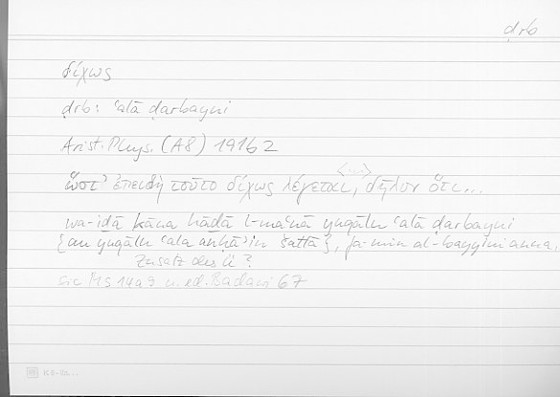 ḍrb
δίχως
ḍrb: ʿalā ḍarbayni
Arist. Phys. (A8) 191b2
ὥστ' ἐπειδὴ τοῦτο δίχως λέγεται, δῆλον ὅτι...
wa-iḏā kāna hāḏā l-maʿnā yuqālu ʿalā ḍarbayni
{au yuqālu ʿalā anḥāʾin šattā}, fa-min al-bayyini anna.
Zusatz des Ü?
sic MS 14a9 u. ed. Badawi 67